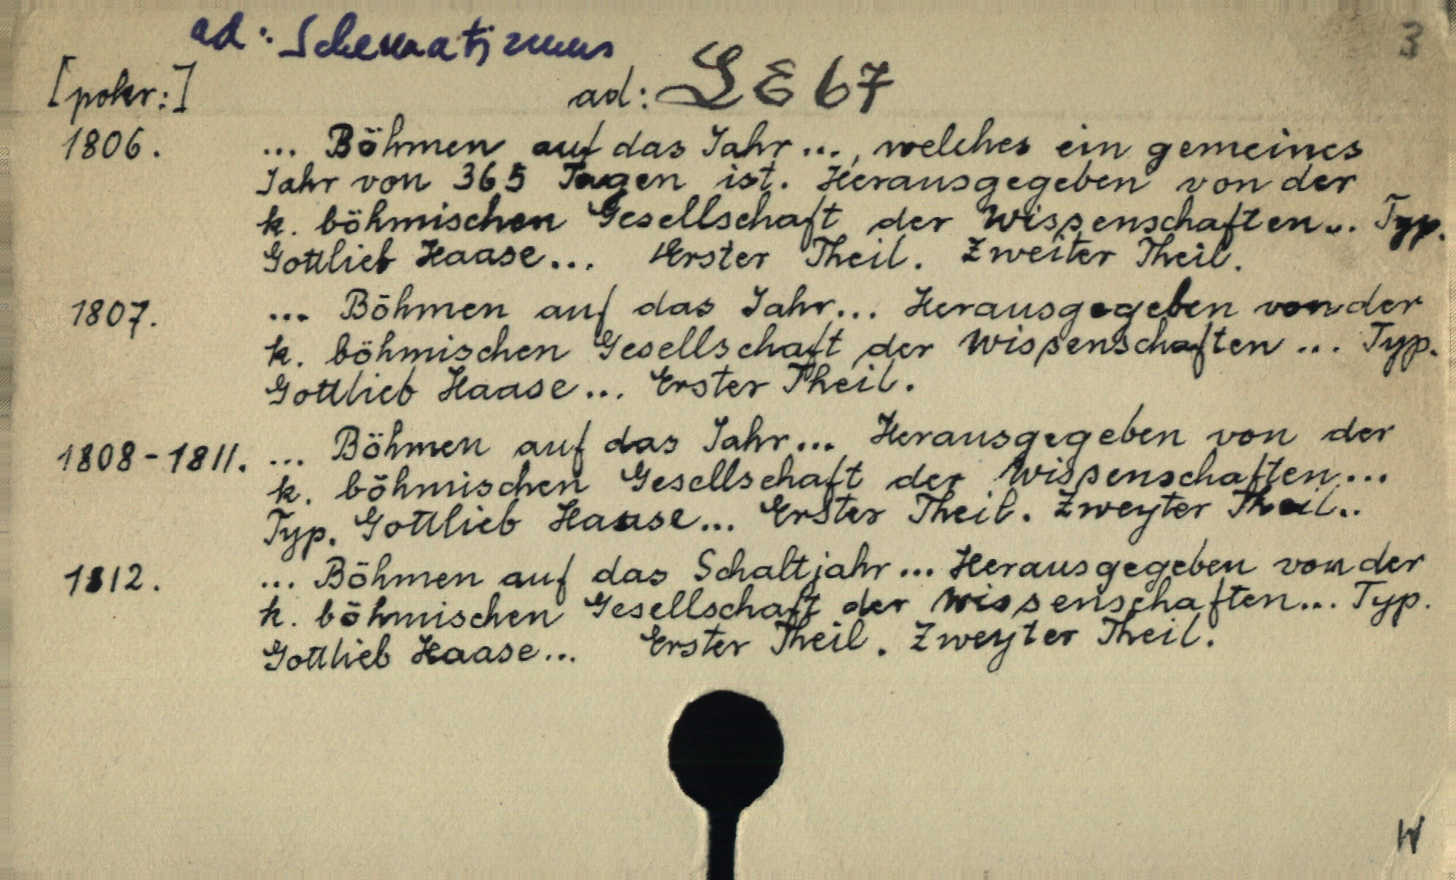 ad: Schematizmus
3
[pokr:]
ad: LE67
1806. ... Böhmen auf das Jahr..., welches ein gemeines
Jahr von 365 Tagen ist. Herausgegeben von der
k. böhmischen Gesellschaft der Wissenschaften... Typ.
Gottlieb Haase... Erster Theil. Zweiter Theil.
1807. ... Böhmen auf das Jahr... Herausgegeben von der
k. böhmischen Gesellschaft der Wissenschaften... Typ.
Gottlieb Haase... Erster Theil.
1808-1811. ... Böhmen auf das Jahr... Herausgegeben von der
k. böhmischen Gesellschaft der Wissenschaften...
Typ. Gottlieb Haase... Erster Theil. Zweyter Theil..
1812. ... Böhmen auf das Schaltjahr... Herausgegeben von der
k. böhmischen Gesellschaft der Wissenschaften... Typ.
Gottlieb Haase... Erster Theil. Zweyter Theil.
W